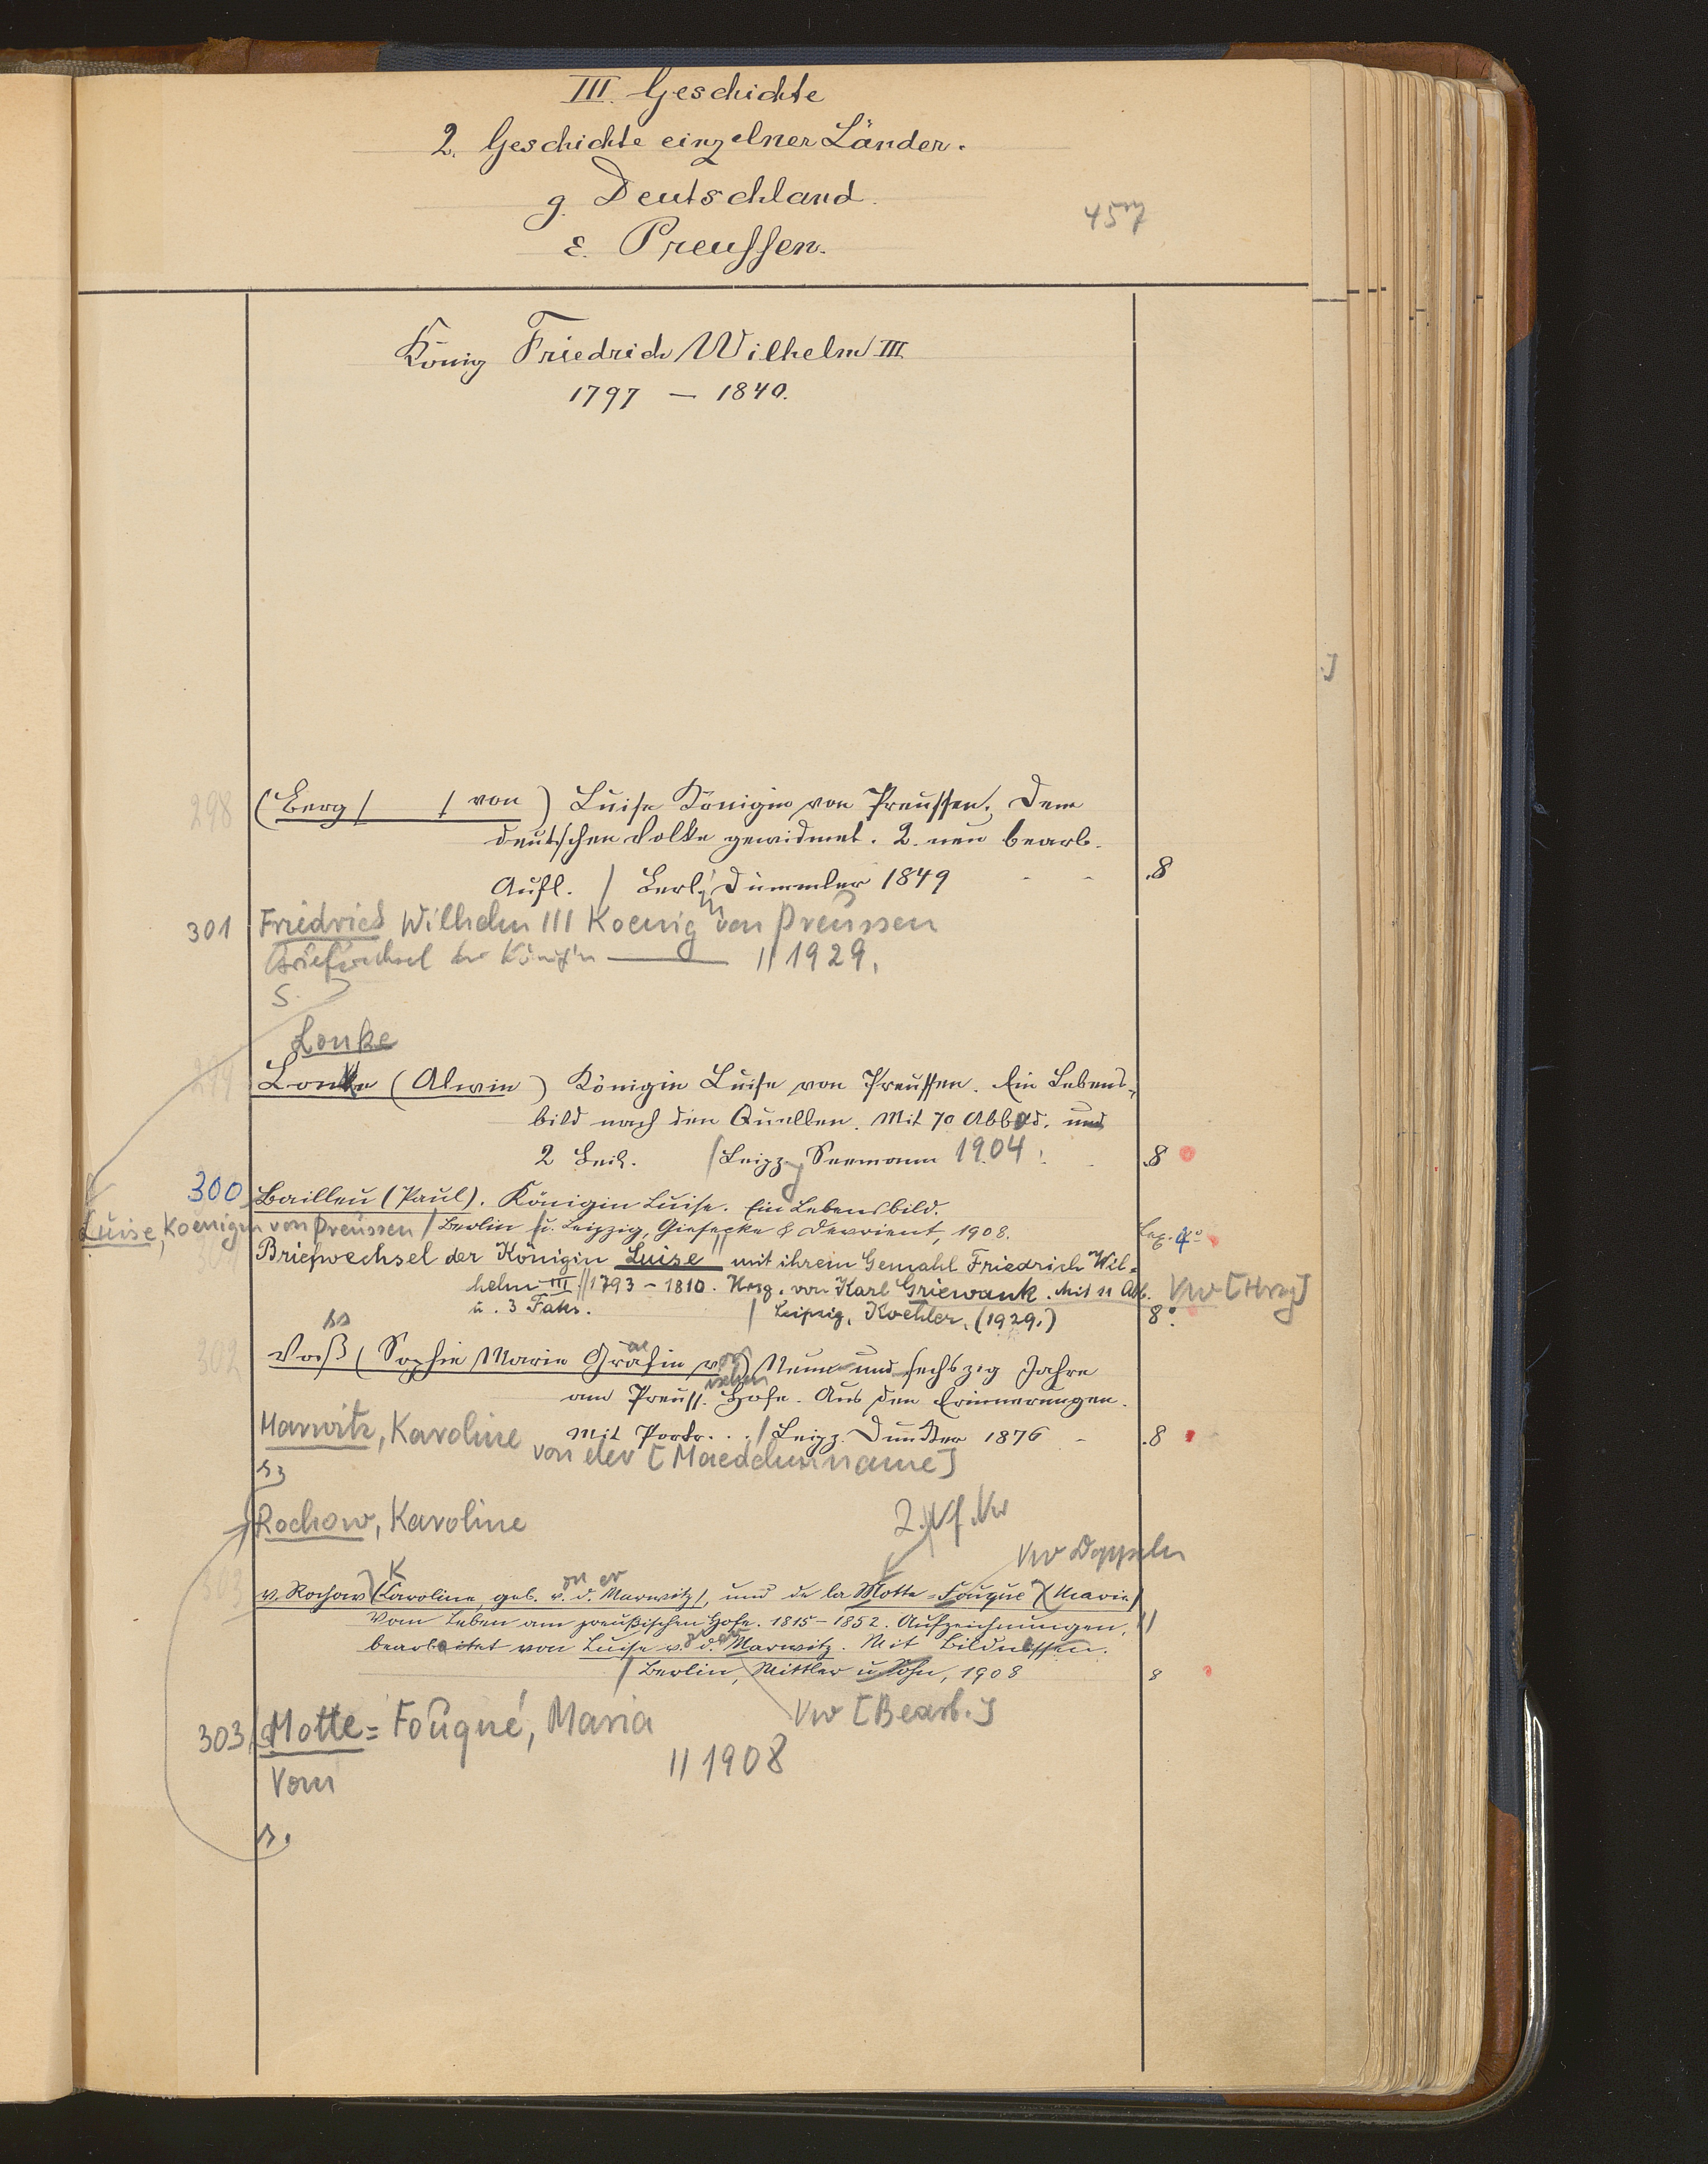 III. Geschichte
2. Geschichte einzelner Länder.
g. Deutschland.
ε. Preussen.
457
König Friedrich Wilhelm III.
1797 – 1840.
298 (Berg / / von) Luise Königin von Preussen. Dem
deutschen Volke gewidmet. 2. neu bearb.
Aufl. / Berl. Dümmler 1849 - - .8
301 Friedrich Wilhelm III Koenig von Preussen
Briefwechsel der Königin —— // 1929.
s.
Lonke
299 Lonke (Alwin) Königin Luise von Preussen. Ein Lebens-
bild nach den Quellen. Mit 70 Abbild. und
2 Beil. / Leipz. Seemann 1904. .8
300 Bailleu (Paul). Königin Luise. Ein Lebensbild.
Luise, Koenigin von Preussen / Berlin u. Leipzig, Giesecke & Devrient, 1908. Lex. 4°
301 Briefwechsel der Königin Luise mit ihrem Gemahl Friedrich Wil-
helm III // 1793 – 1810. Hrsg. von Karl Griewank. Mit 11 Abb. Vw [Hrsg]
u. 3 Faks. / Leipzig, Koehler, (1929.) 8°.
ss
302 Voß (Sophie Marie Gräfin von) Neun und sechszig Jahre
am Preuss. ischen Hofe. Aus den Erinnerungen.
Mit Portr. . . / Leipz. Duncker 1876 - .8
Marwitz, Karoline von der [Maedchenname]
s.
Rochow, Karoline
2. Vf. Vw
Vw Doppeln
303 v. Rochow (Caroline, geb. v. d. Marwitz), und de la Motte-Fouqué (Marie)
Vom Leben am preußischen Hofe. 1815 – 1852. Aufzeichnungen, //
bearbeitet von Luise v. d. Marwitz. Mit Bildnissen.
/ Berlin, Mittler u. Sohn, 1908 8
303 Motte = Fouqué, Maria Vw [Bearb.]
// 1908
Vom
s.